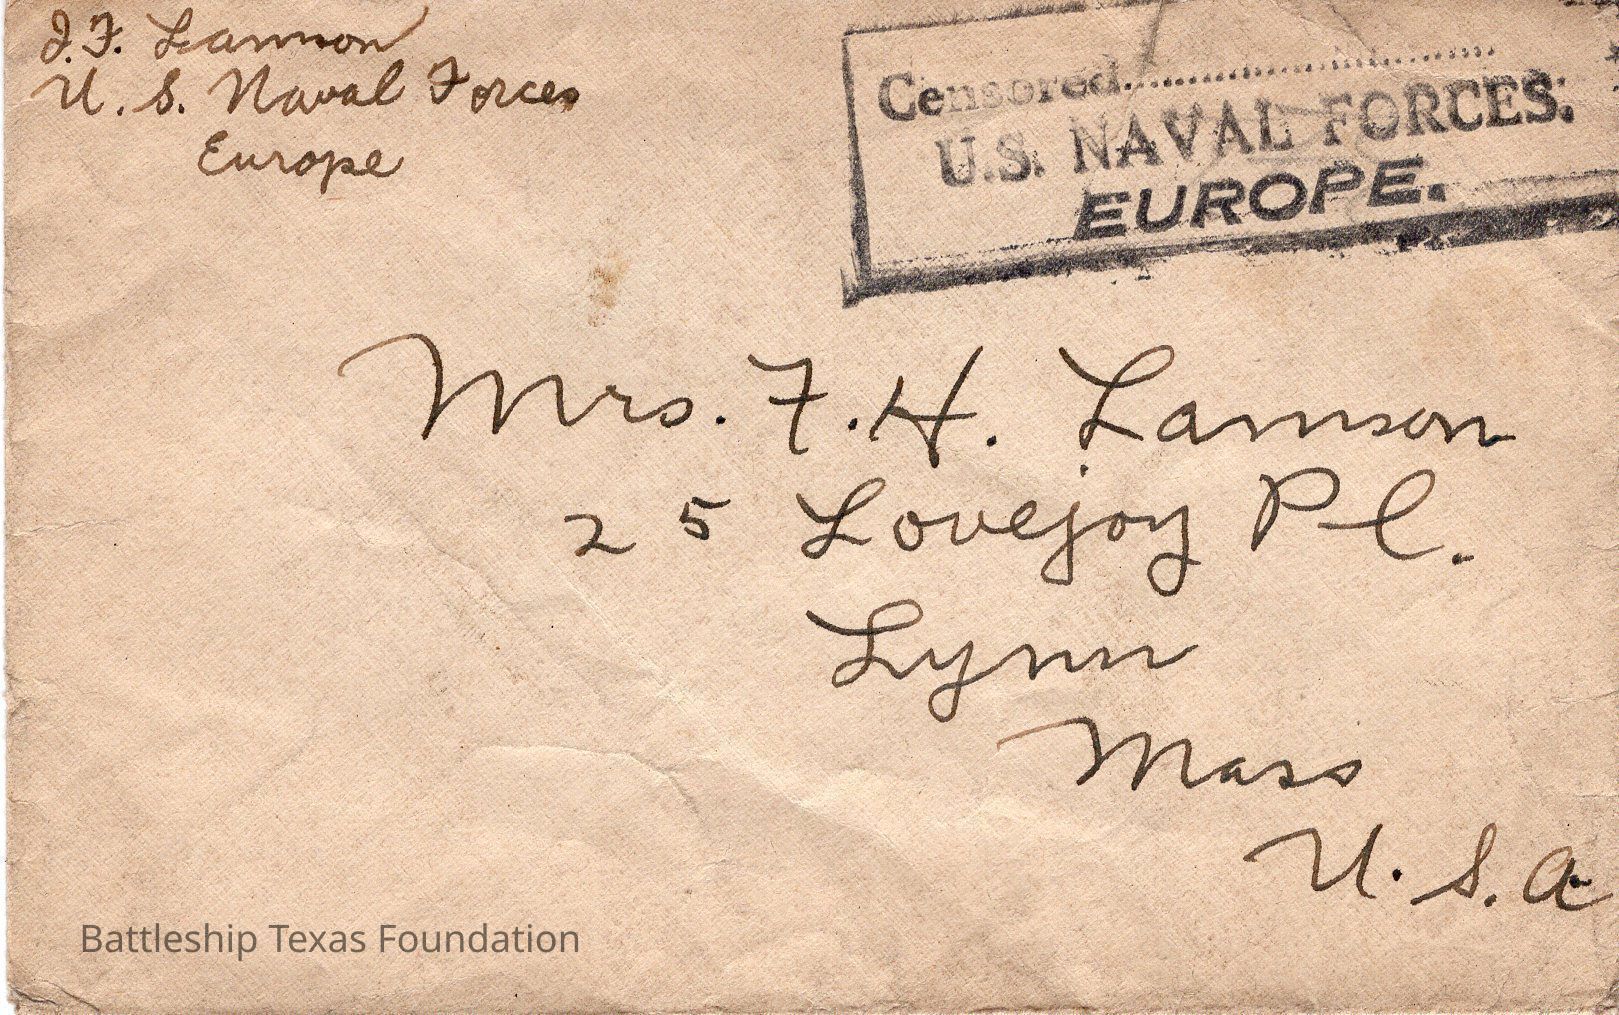 J.F. Lamson
U.S. Naval Forces
Europe
Censored..............................
U.S. NAVAL FORCES.
EUROPE.
Mrs. F.H. Lamson
25 Lovejoy Pl.
Lynn
Mass
U.S.A.
Battleship Texas Foundation